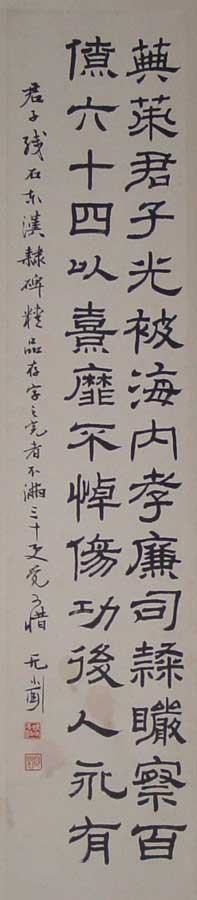 蕪萊君子光被海内孝廉司隸矚察百
僚六十四以熹靡不悼傷功後人永有
君子殘石東漢隸碑精品存字之完者不滿三十文覺可惜